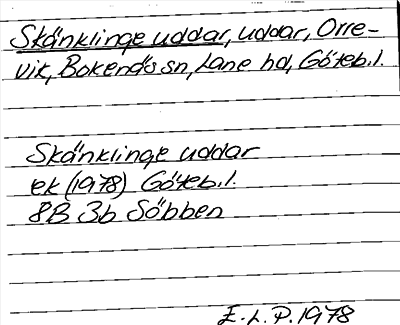 Skänklinge uddar, uddar, Orre-
vik, Bokenäs sn, Lane hd, Göteb.l.
Skänklinge uddar
ek (1978) Göteb.l.
8B 3b Söbben
E.L.P. 1978